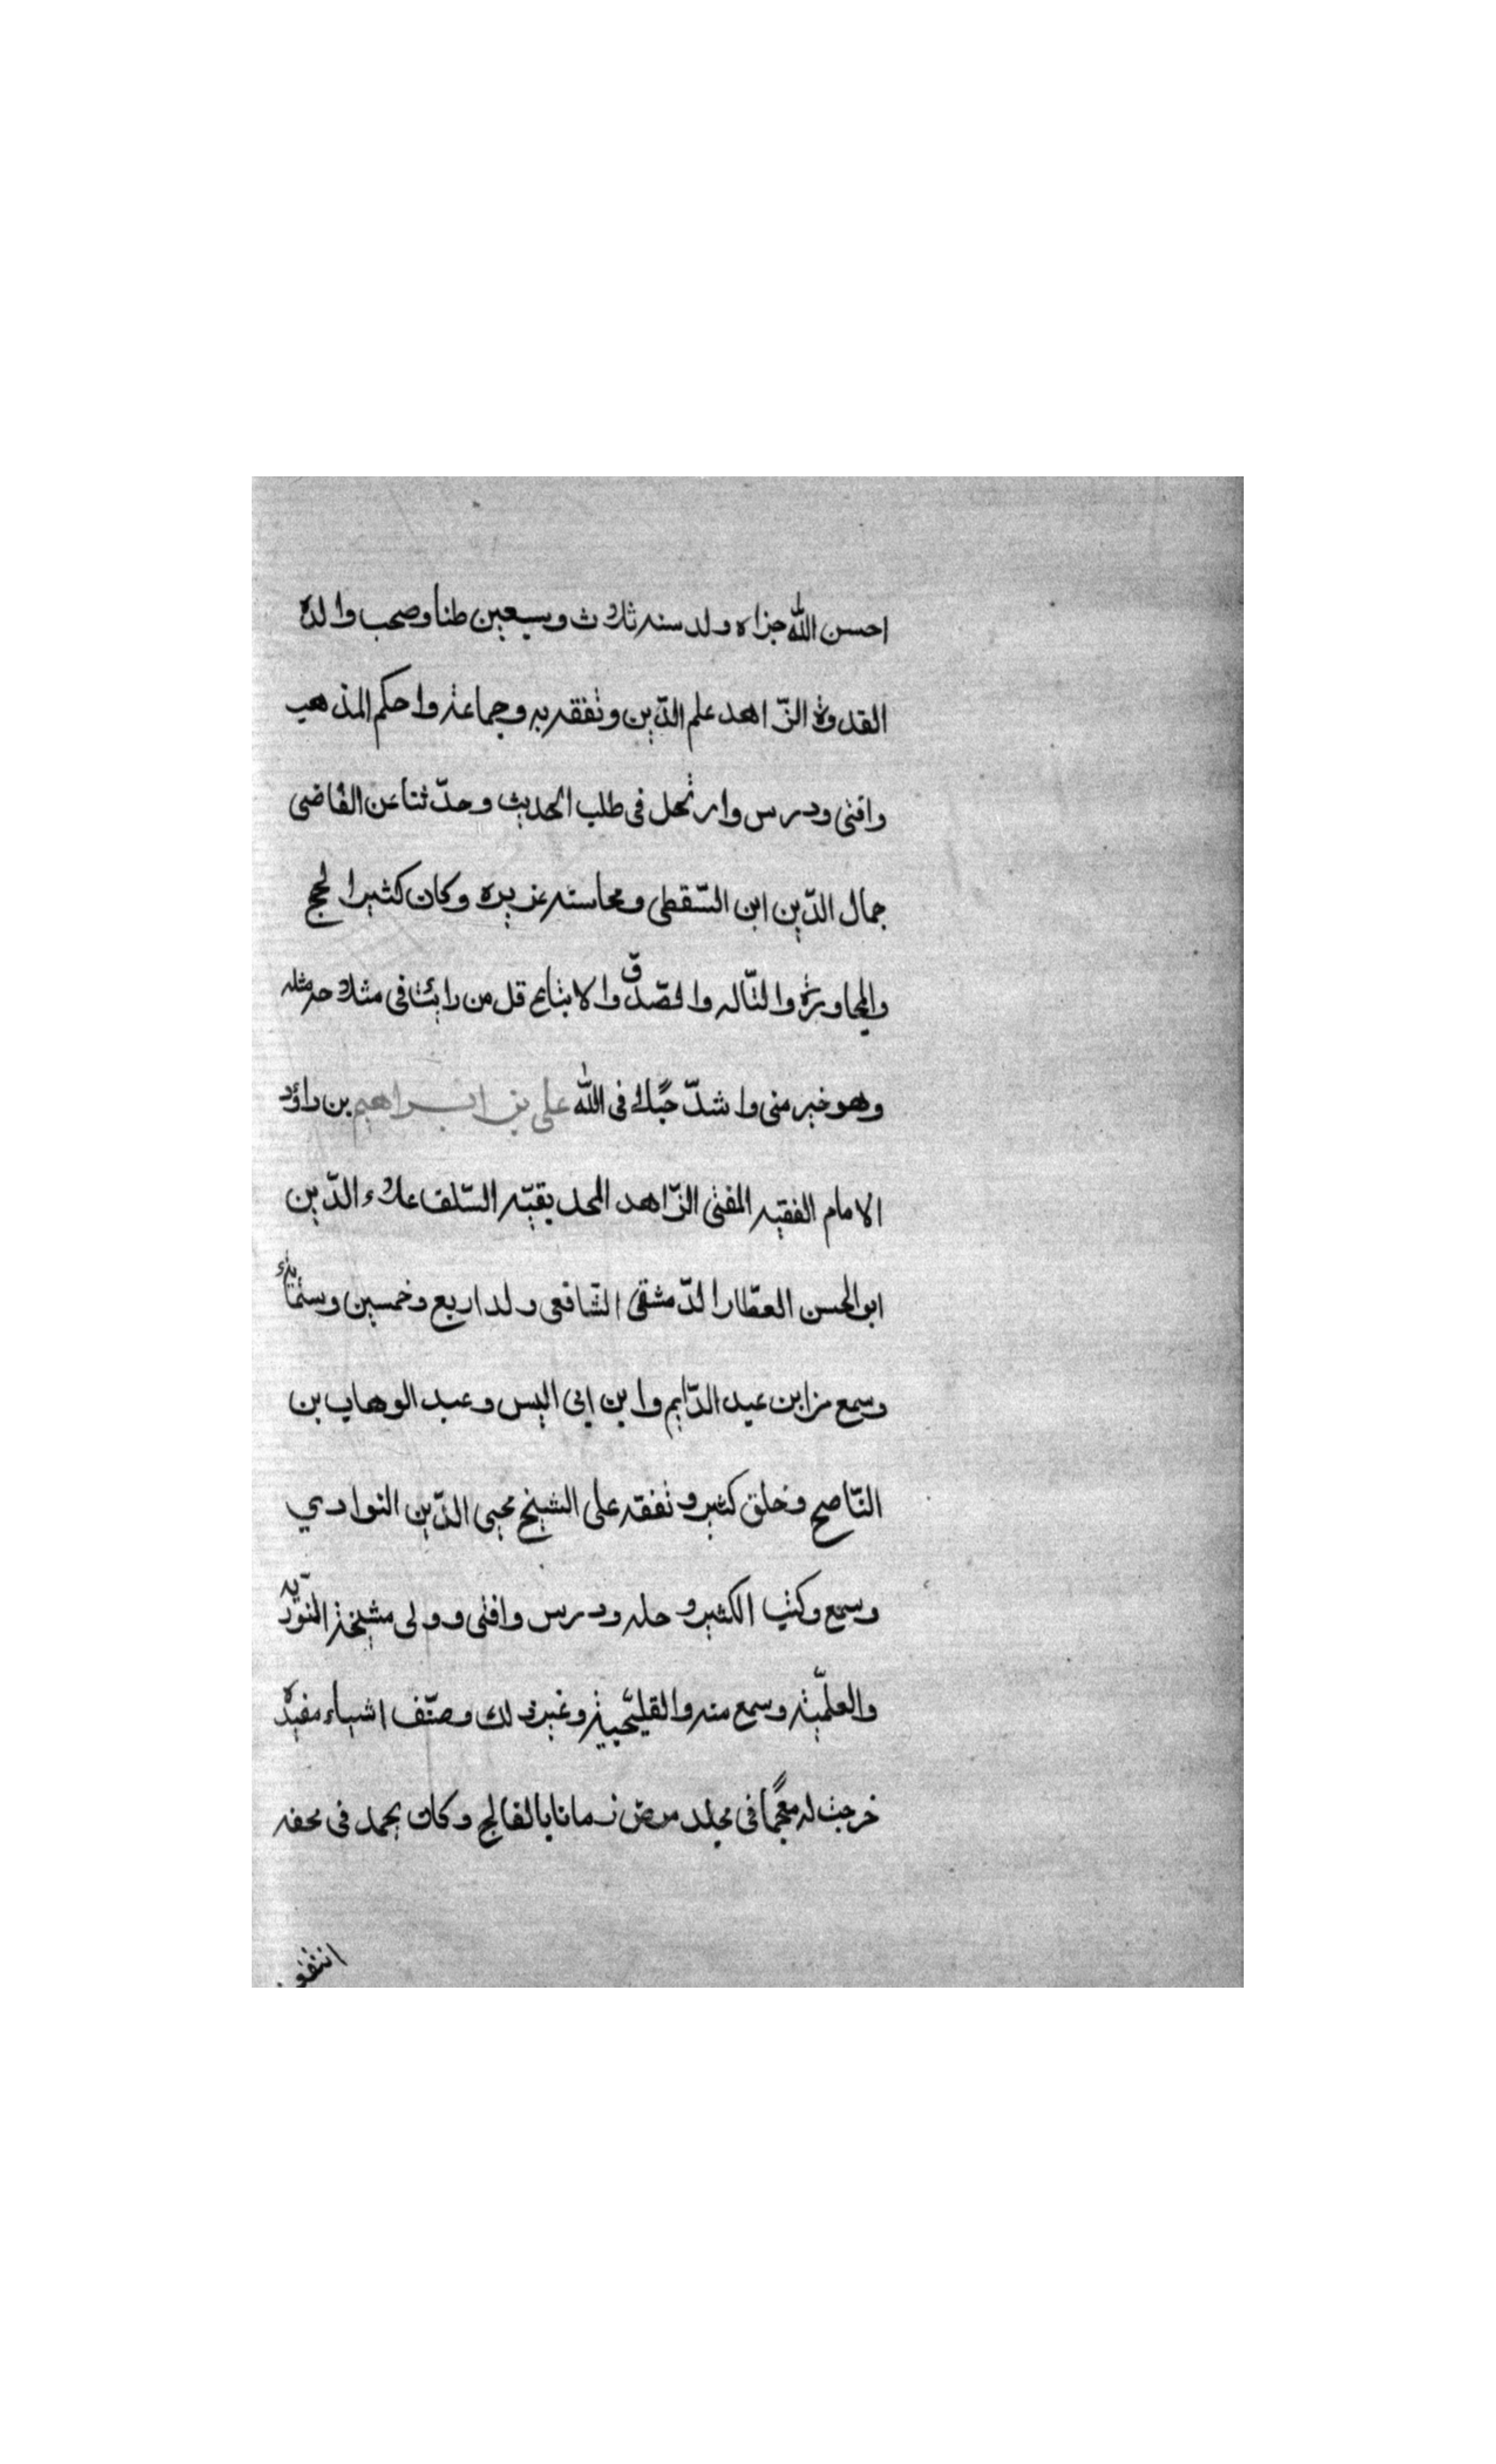 احسن الله جزاه ولد سنه ثلاث وسبعين طنا وصحب والده
القدوة الزّاهد علم الدّين وتفقه به وجماعة واحكم المذهب
وافتى ودرس وارتحل فى طلب الحديث وحدّثنا عن القاضى
جمال الدّين ابن السّقطى ومحاسنه غزيره وكان كثير الحج
والمجاورة والتّاله والصّدق والاتباع قل من رايت فى مثله
وهو خير منى واشدّ حبّا فى الله على بن ابراهيم بن داؤد
الامام الفقيه المفتى الزّاهد المحد بقيّه السّلف علاء الدّين
ابو الحسن العطّار الدّمشقى الشّافعى ولد اربع وخمسين وستمائة
وسمع من ابن عبد الدّايم وابن ابى اليس وعبد الوهاب بن
النّاصح وخلق كثير وتفقه على الشيخ محيى الدّين النواوي
وسمع وكتب الكثير وحله ودرس وافتى وولى مشيخة النّوريّه
والعلميّة وسمع منه والقليجية وغير ذلك وصنّف اشياء مفيدة
خرجت له معجمًا فى مجلد مرض زمانا بالفالج وكان يحمل فى محفه